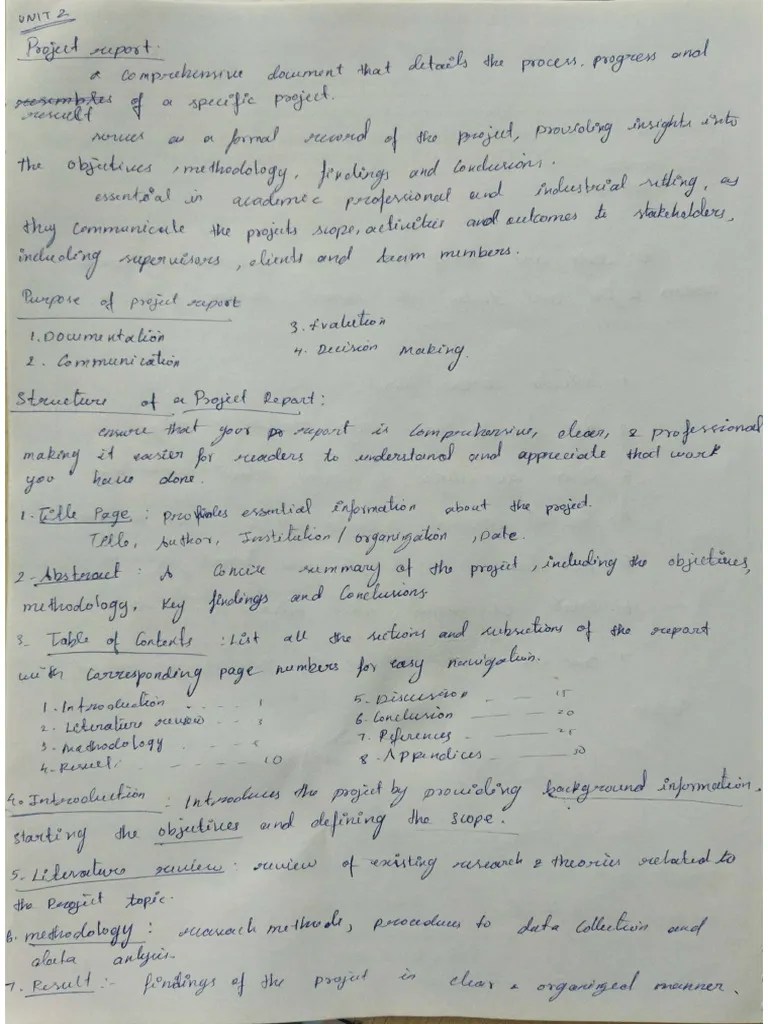 UNIT 2
Project report:
a comprehensive document that details the process, progress and
result of a specific project.
serves as a formal record of the project, providing insights into
the objectives, methodology, findings and conclusions.
essential in academic professional and industrial setting, as
they communicate the projects scope, activities and outcomes to stakeholders,
including supervisors, clients and team members.
Purpose of project report
1. Documentation
2. Communication
3. Evalution
4. Decision Making.
Structure of a Project Report:
ensure that your report is comprehensive, clear, & professional
making it easier for readers to understand and appreciate that work
you have done.
1. Title Page : provides essential information about the project.
Title, Author, Institution/organization, Date.
2. Abstract : A concise summary of the project, including the objectives,
methodology, key findings and Conclusions
3. Table of Contents : List all the sections and subsections of the report
with corresponding page numbers for easy navigation.
1. Introduction - - - - 1
2. Literature review - - - 3
3. Mathodology - - - 5
4. Result. - - - - 10
5. Discussion - - - 15
6. Conclusion - - - 20
7. References - - - 25
8. Appendices - - - 30
4. Introduction : Introduces the project by providing background information.
starting the objectives and defining the scope.
5. Literature review : review of existing research & theories related to
the Project topic.
6. methodology : research methods, procedures to data collection and
data anlysis.
7. Result :- findings of the project in clear & organized manner.